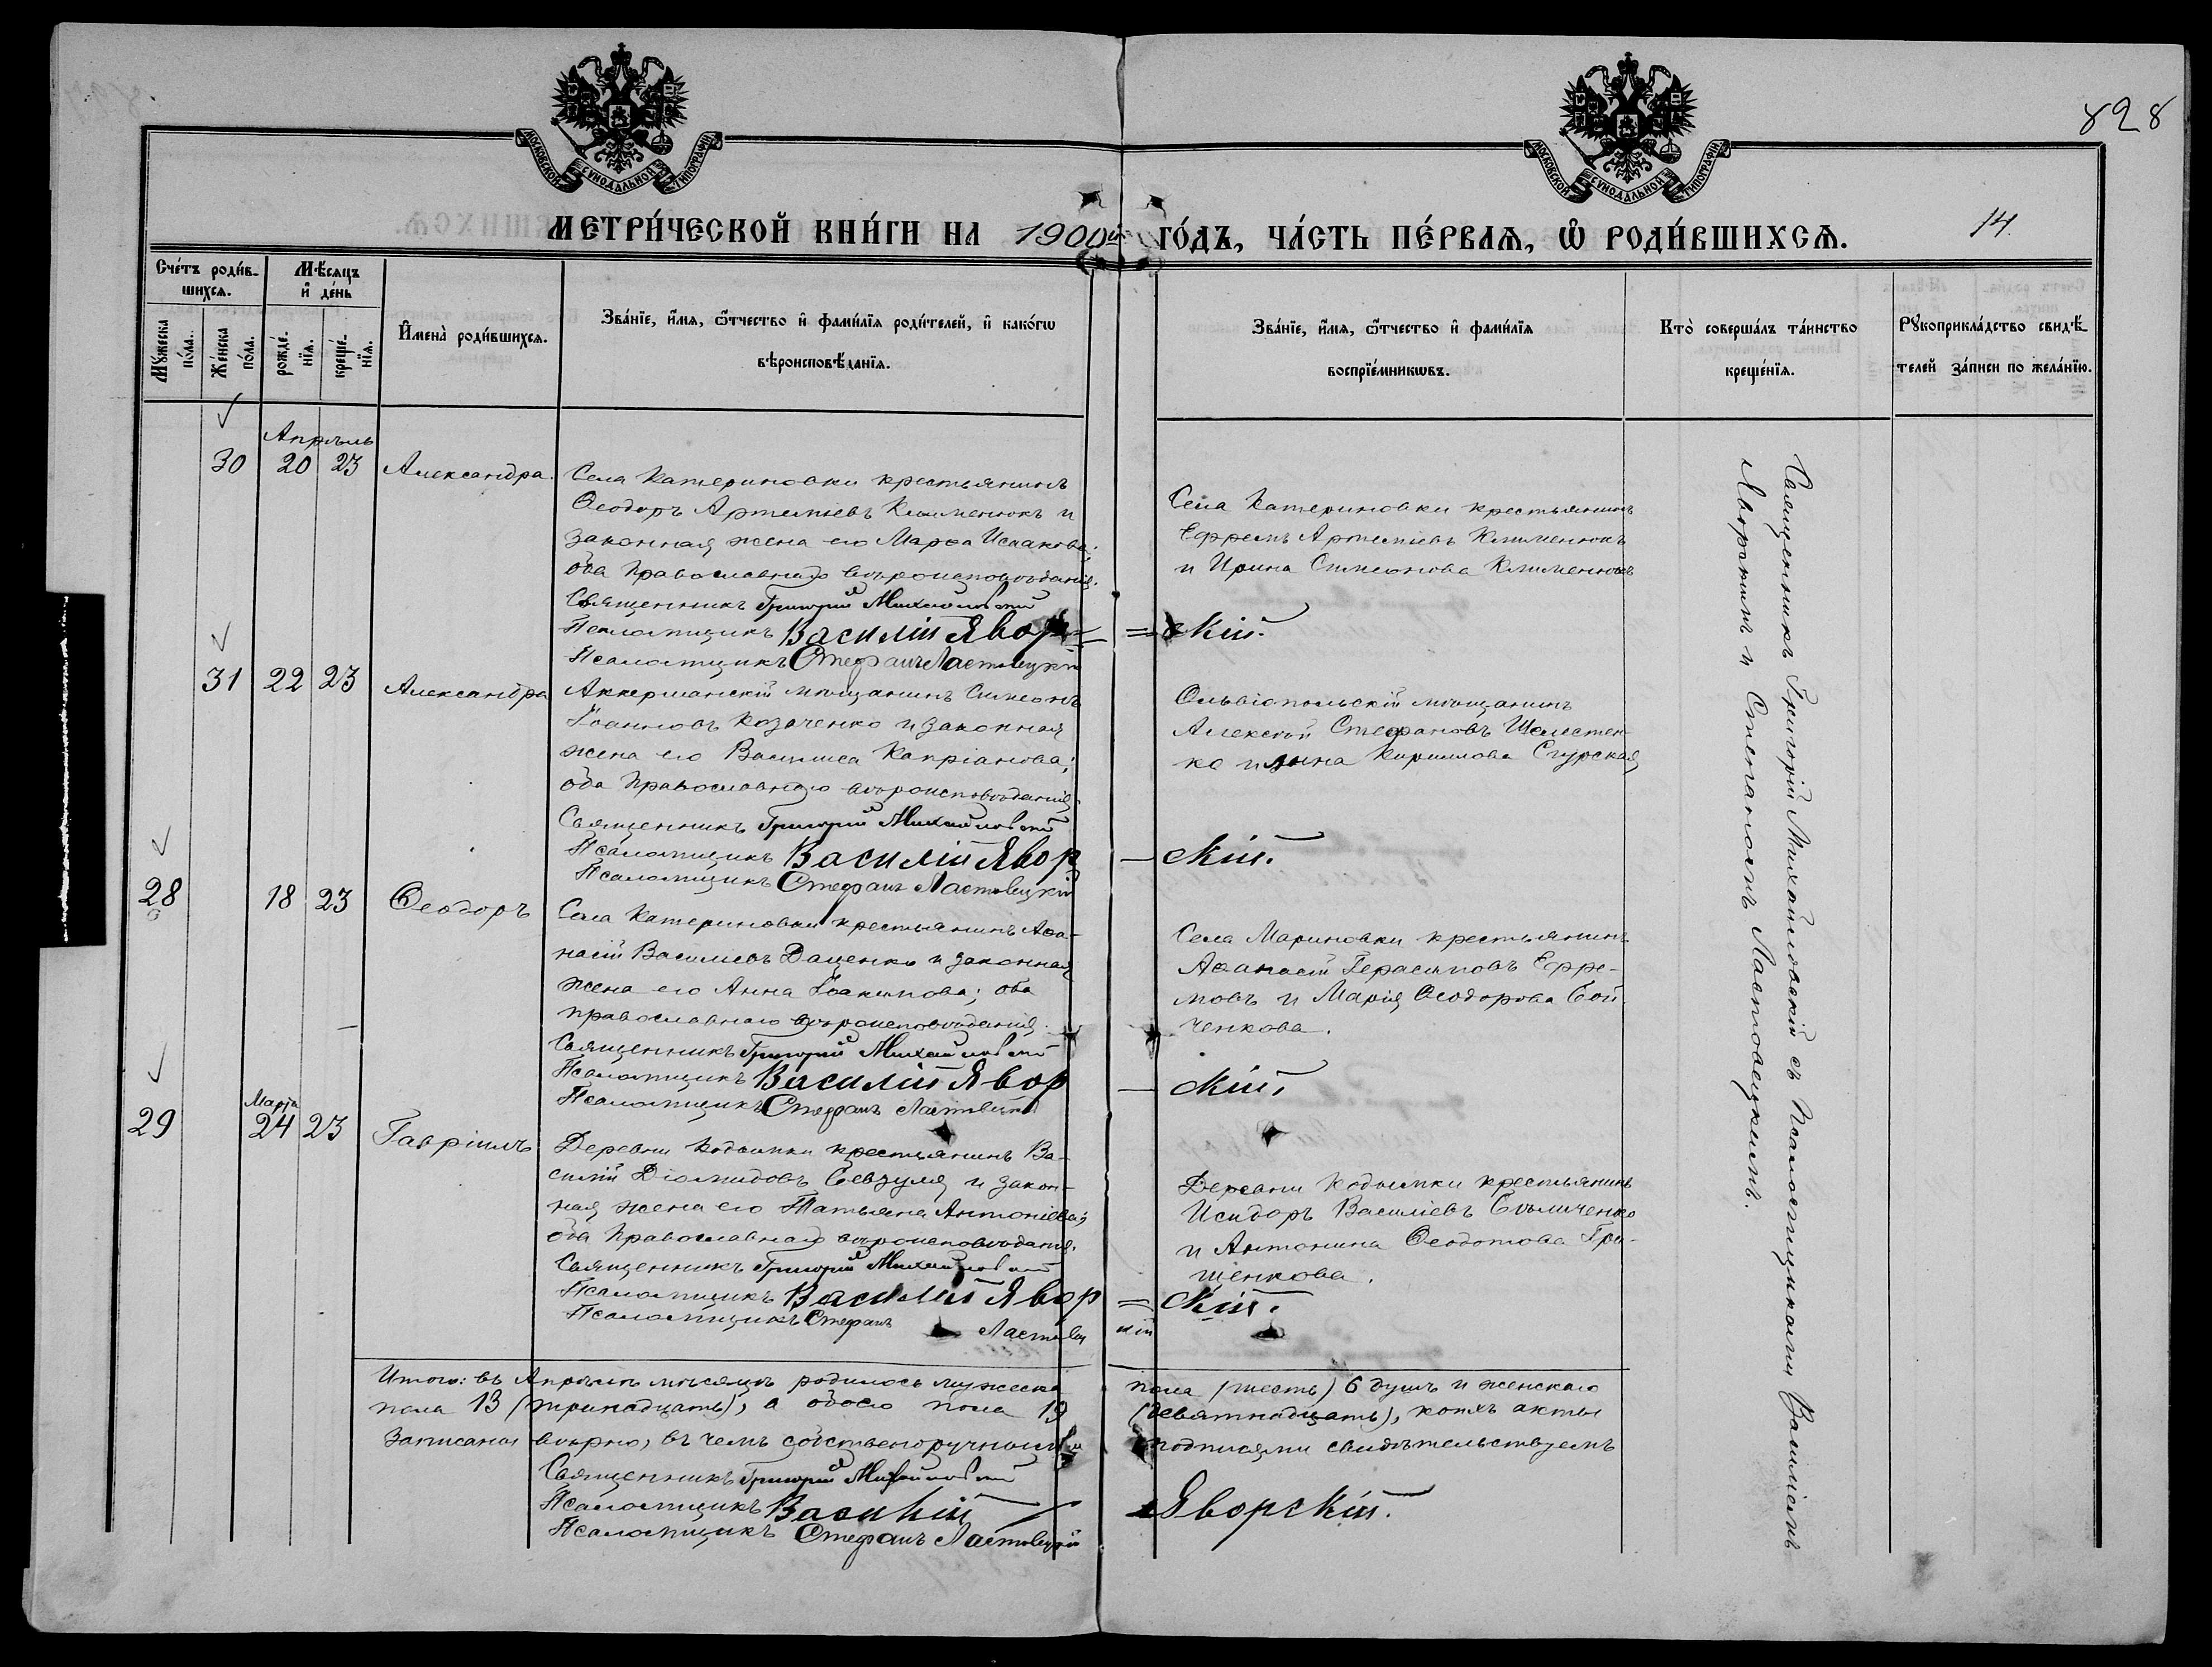 828
МОСКОВСКОЙ СѴНОДАЛЬНОЙ ТИПОГРАФІИ
МОСКОВСКОЙ СѴНОДАЛЬНОЙ ТИПОГРАФІИ
МЕТРИ́ЧЕСКОЙ КНИ́ГИ НА 1900й ГО́ДЪ, ЧА́СТЬ ПЕ́РВАѦ, Ѡ҆ РОДИ́ВШИХСѦ.
14.
Сче́тъ роди́в-
шихсѧ.
Мѣ́сѧцъ
и҆ де́нь
Мꙋ́жеска
по́ла.
Же́нска
по́ла.
рожде́-
нїѧ.
креще́-
нїѧ.
И҆мена̀ роди́вшихсѧ.
Зва́нїе, и҆́мѧ, ѻ҆́тчество и҆ фами́лїѧ роди́телей, и҆ како́гѡ
вѣроисповѣ́данїѧ.
Зва́нїе, и҆́мѧ, ѻ҆́тчество и҆ фами́лїѧ
воспрїе́мникѡвъ.
Кто̀ соверша́лъ та́инство
креще́нїѧ.
Рꙋкоприкла́дство свидѣ́-
телей за́писи по жела́нїю.
Апрѣль
30 20 23 Александра.
Села Катериновки крестьянинъ
Ѳеодоръ Артеміевъ Клименюкъ и
законная жена его Марѳа Исаакова;
оба Православнаго вѣроисповѣданія.
Священникъ Григорій Михайловскій
Псаломщикъ Василій Явор=
=скій.
Псаломщикъ Стефанъ Ластовецкій
Села Катериновки крестьянинъ
Ефремъ Артеміевъ Клименюкъ
и Ирина Симеонова Клименюкъ
31 22 23 Александра
Аккерманскій мѣщанинъ Симеонъ
Іоанновъ Козаченко и законная
жена его Василиса Капріанова;
оба Православнаго вѣроисповѣданія.
Священникъ Григорій Михайловскій
Псаломщикъ Василій Явор
—скій.
Псаломщикъ Стефанъ Ластовецкій
Ольвіопольскій мѣщанинъ
Алексѣй Стефановъ Шелестен-
ко и Анна Кириллова Сгурская
28 18 23 Ѳеодоръ
Села Катериновки крестьянинъ Аѳа-
насій Василіевъ Даценко и законная
жена его Анна Іоакимова; оба
православнаго вѣроисповѣданія.
Священникъ Григорій Михайловскій
Псаломщикъ Василій Явор
—скій.
Псаломщикъ Стефанъ Ластовецкій
Села Мариновки крестьянинъ
Аѳанасій Герасимовъ Ефре-
мовъ и Марія Ѳеодорова Бой-
ченкова.
Марта
29 24 23 Гавріилъ
Деревни Кодымки крестьянинъ Ва-
силій Діомидовъ Севзуля и закон-
ная жена его Татьяна Антоніева;
оба Православнаго вѣроисповѣданія.
Священникъ Григорій Михайловскій
Псаломщикъ Василій Явор
=скій.
Псаломщикъ Стефанъ Ластовецкій
Деревни Кодымки крестьянинъ
Исидоръ Василіевъ
и Антонина Ѳеодотова Гри-
щенкова.
Священникъ Григорій Михайловскій съ Псаломщиками Василіемъ
Яворскимъ и Стефаномъ Ластовецкимъ.
Итого: въ Апрѣлѣ мѣсяцѣ родилось мужеска пола (шесть) 6 душъ и женскаго
пола 13 (тринадцать), а обоего пола 19 (девятнадцать), коихъ акты
записаны вѣрно, въ чемъ собственноручными подписями свидѣтельствуемъ
Священникъ Григорій Михайловскій
Псаломщикъ Василій Яворскій.
Псаломщикъ Стефанъ Ластовецкій